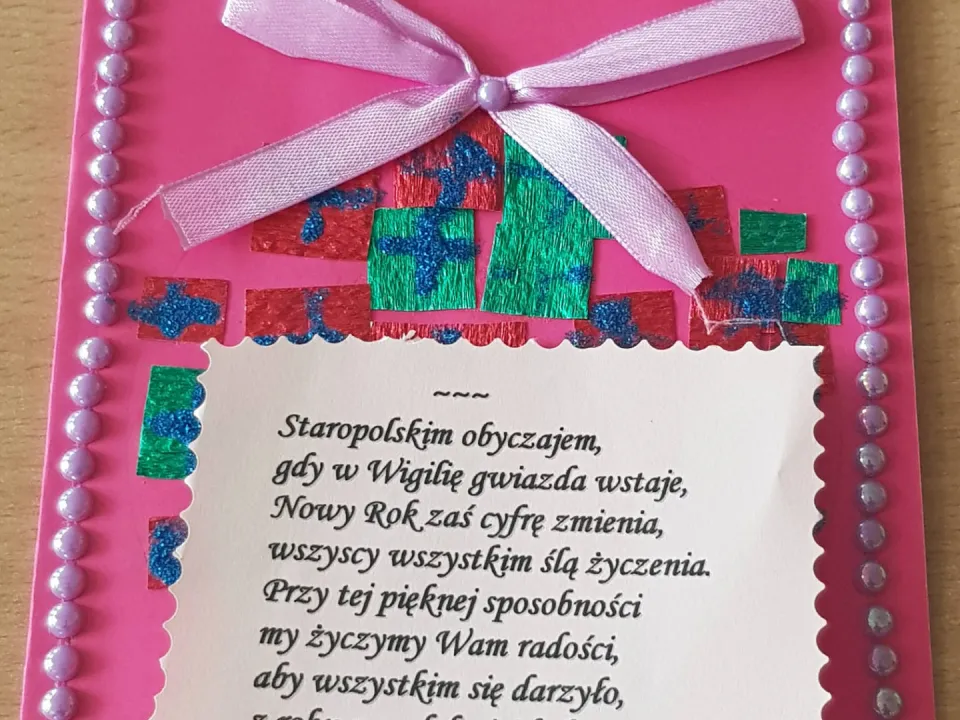 ~~~
Staropolskim obyczajem,
gdy w Wigilię gwiazda wstaje,
Nowy Rok zaś cyfrę zmienia,
wszyscy wszystkim ślą życzenia.
Przy tej pięknej sposobności
my życzymy Wam radości,
aby wszystkim się darzyło,